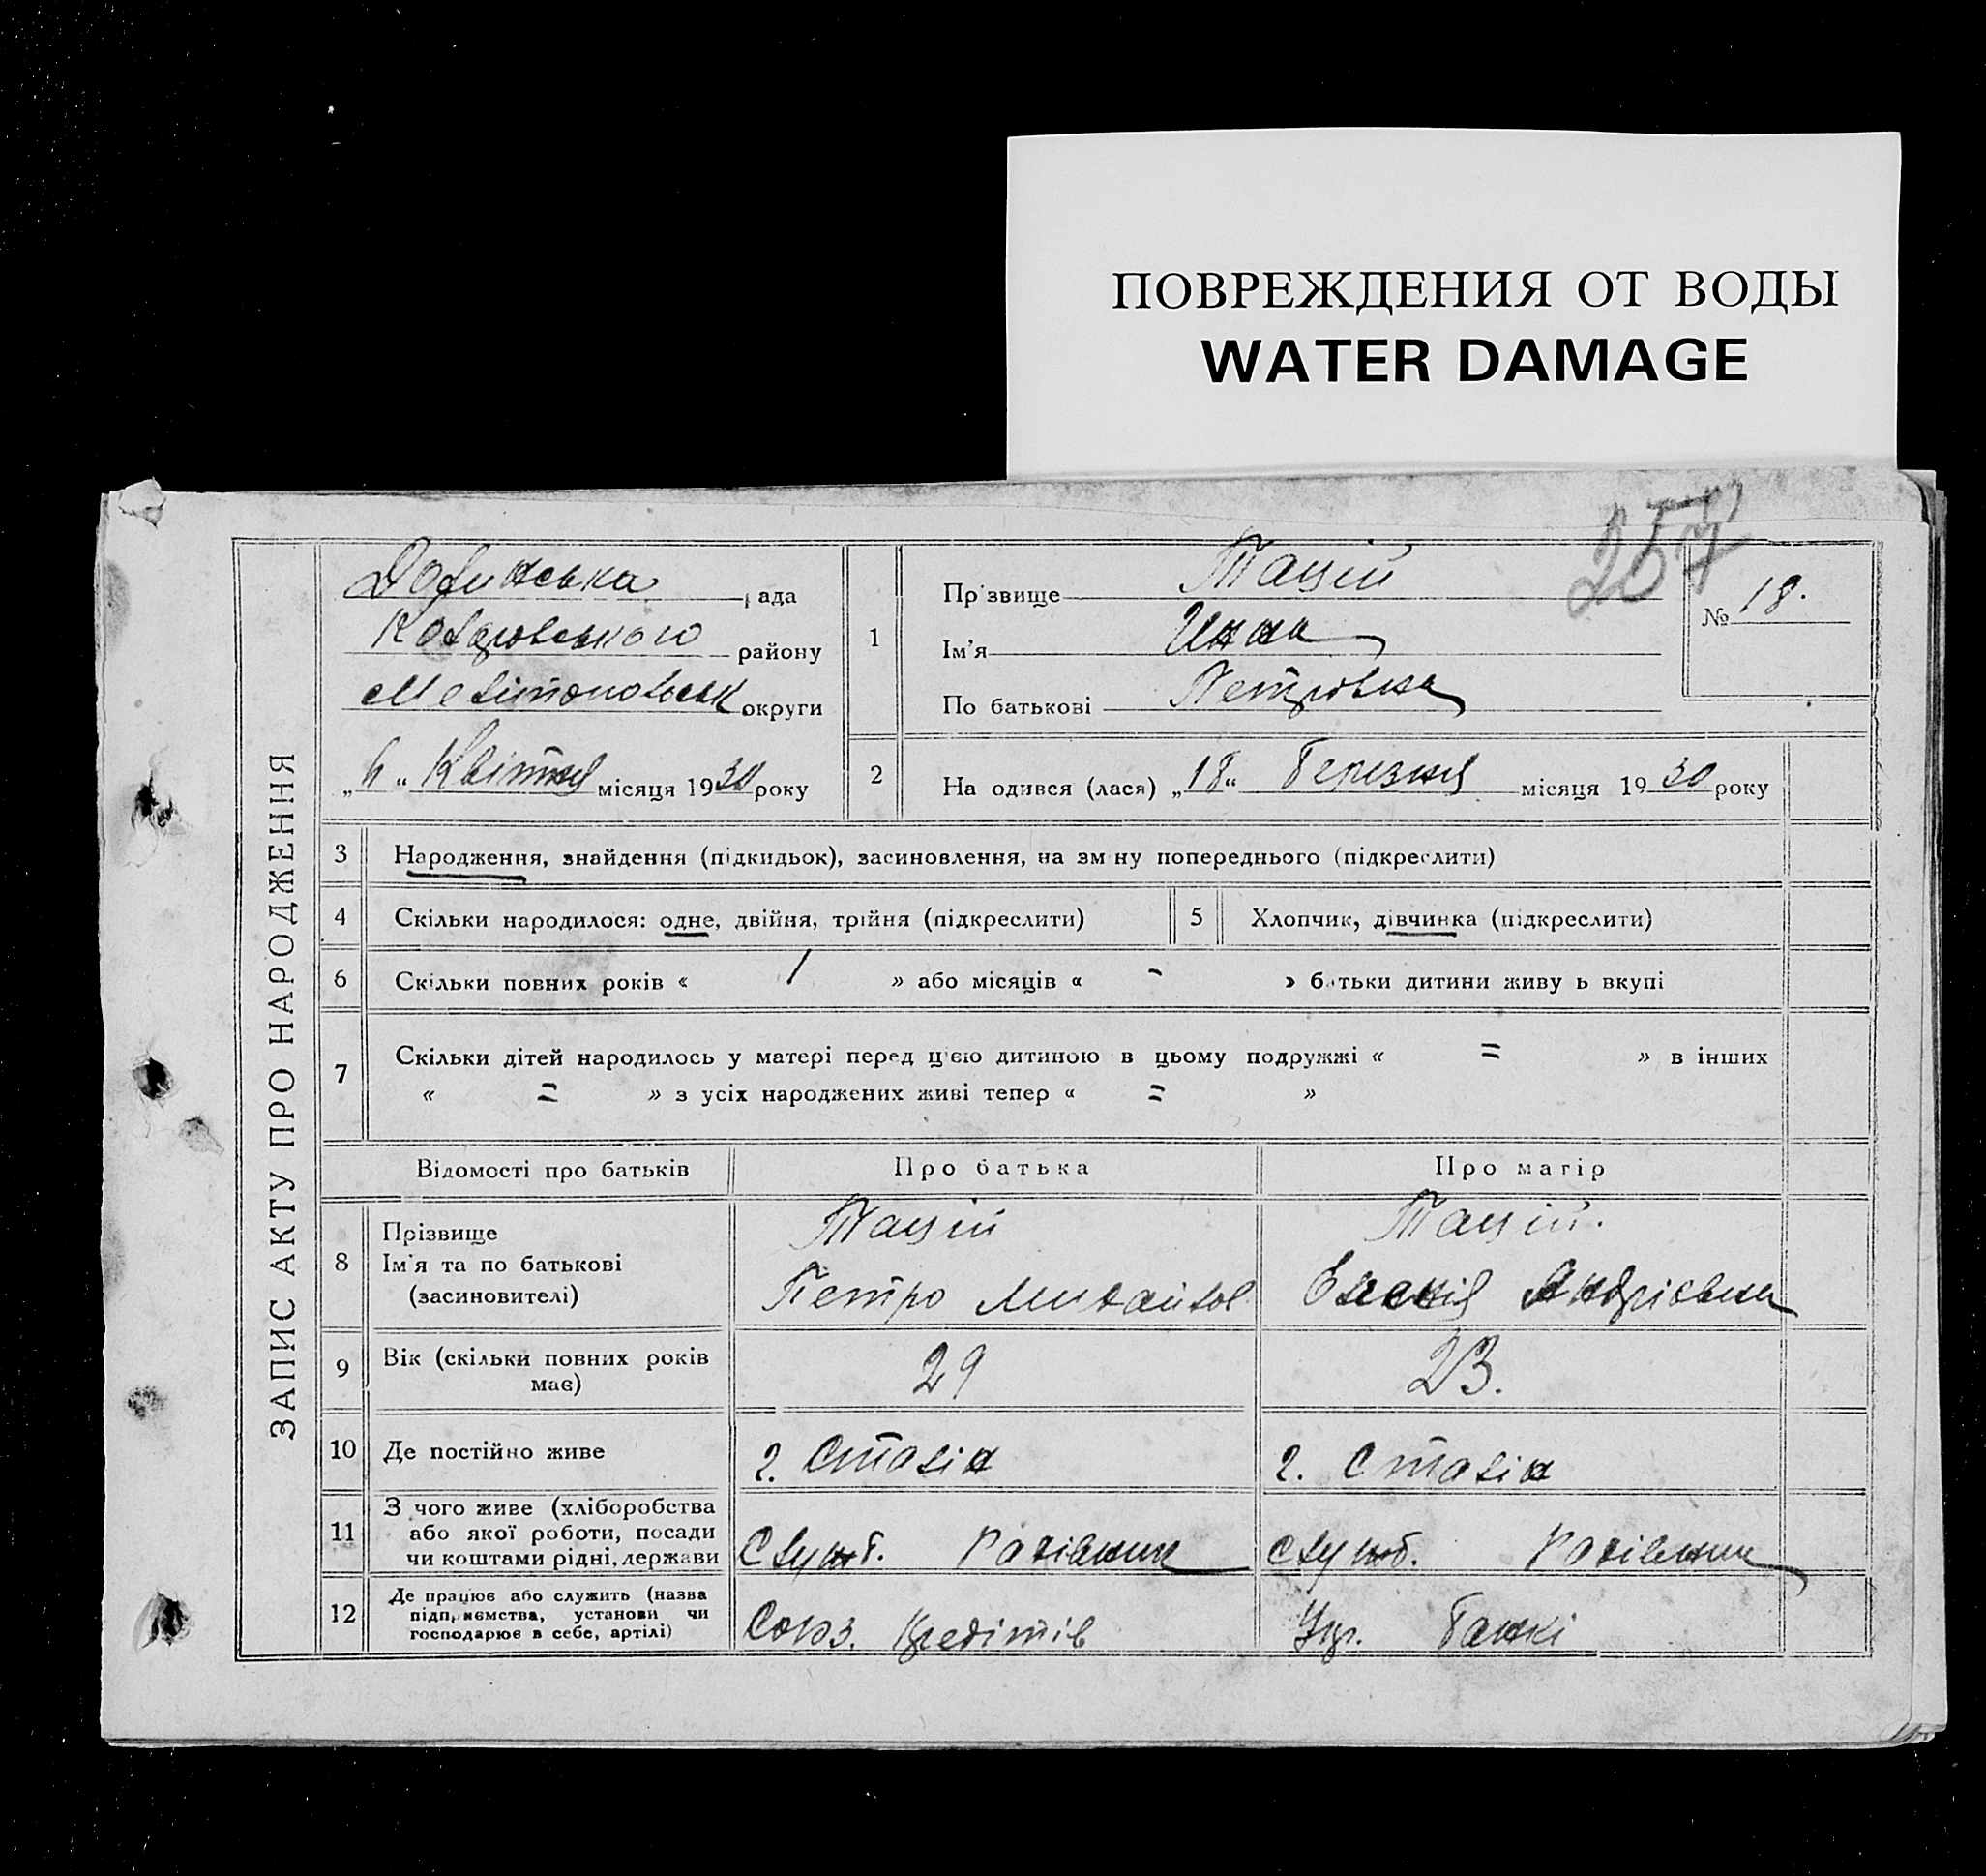 ПОВРЕЖДЕНИЯ ОТ ВОДЫ
WATER DAMAGE
257
ЗАПИС АКТУ ПРО НАРОДЖЕННЯ
рада
району
Мелітопольськ округи
„6“ Квітня місяця 1930 року
1
Прізвище Тацій
Ім'я Инна
По батькові Петровна
№ 18.
2 Народився (лася) „18“ Березня місяця 1930 року
3 Народження, знайдення (підкидьок), засиновлення, на зміну попереднього (підкреслити)
4 Скільки народилося: одне, двійня, трійня (підкреслити) 5 Хлопчик, дівчинка (підкреслити)
6 Скільки повних років « 1 » або місяців « - » батьки дитини живуть вкупі
7 Скільки дітей народилось у матері перед цією дитиною в цьому подружжі « = » в інших
« = » з усіх народжених живі тепер « = »
Відомості про батьків Про батька Про матір
8 Прізвище Тацій Тацій.
Ім'я та по батькові
(засиновителі) Петро Михайлов Андрієвна
9 Вік (скільки повних років має) 29 23.
10 Де постійно живе
11 З чого живе (хліборобства
або якої роботи, посади
чи коштами рідні, держави Служб. Рахівник Служб. Рахівник
12 Де працює або служить (назва
підприємства, установи чи
господарює в себе, артілі) Союз. Кредітів Укр. Банкі